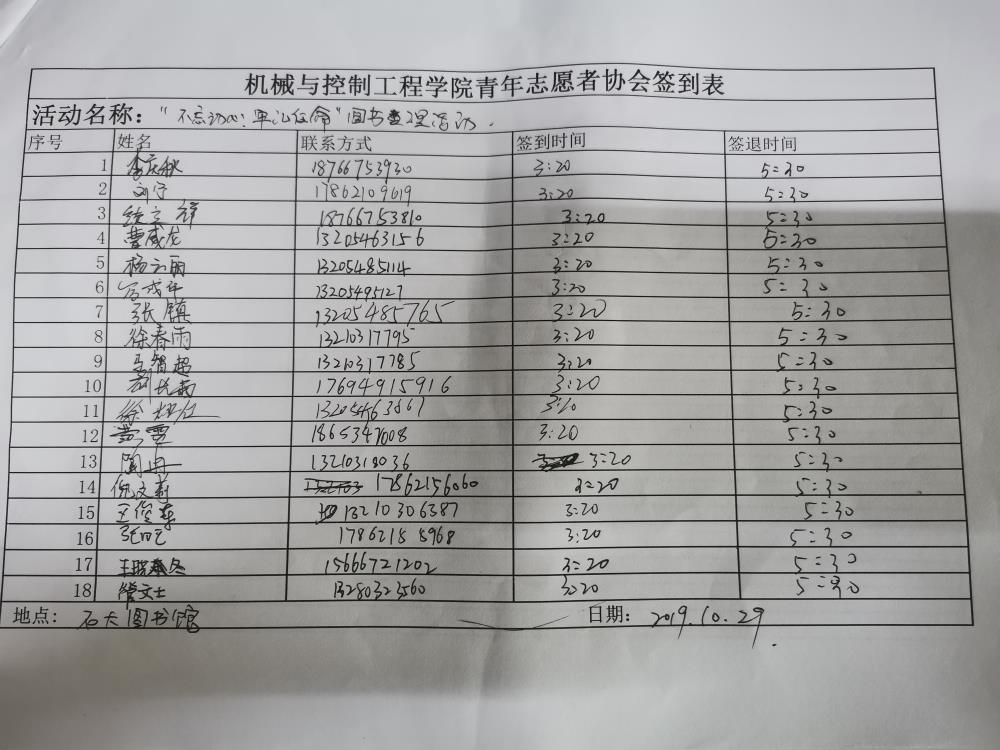 机械与控制工程学院青年志愿者协会签到表
活动名称：“不忘初心，牢记使命”图书整理活动．
序号 姓名 联系方式 签到时间 签退时间
1 李庆秋 18766753930 3:20 5:30
2 刘宁 17862109619 3:20 5:30
3 18766753810 3:20 5:30
4 曹威龙 13205463156 3:20 5:30
5 杨云丽 13205485114 3:20 5:30
6 13205495127 3:20 5:30
7 张镇 13205485765 3:20 5:30
8 徐春雨 13210317795 3:20 5:30
9 王智超 13210317785 3:20 5:30
10 17694915916 3:20 5:30
11 徐 3:20 5:30
12 3:20 5:30
13 陶冉 3:20 5:30
14 倪文莉 17862156060 3:20 5:30
15 王俊 13210306387 3:20 5:30
16 1786215 5968 3:20 5:30
17 15666721202 3:20 5:30
18 管文士 13280323560 3:20 5:30
地点： 石大图书馆 日期： 2019.10.29.